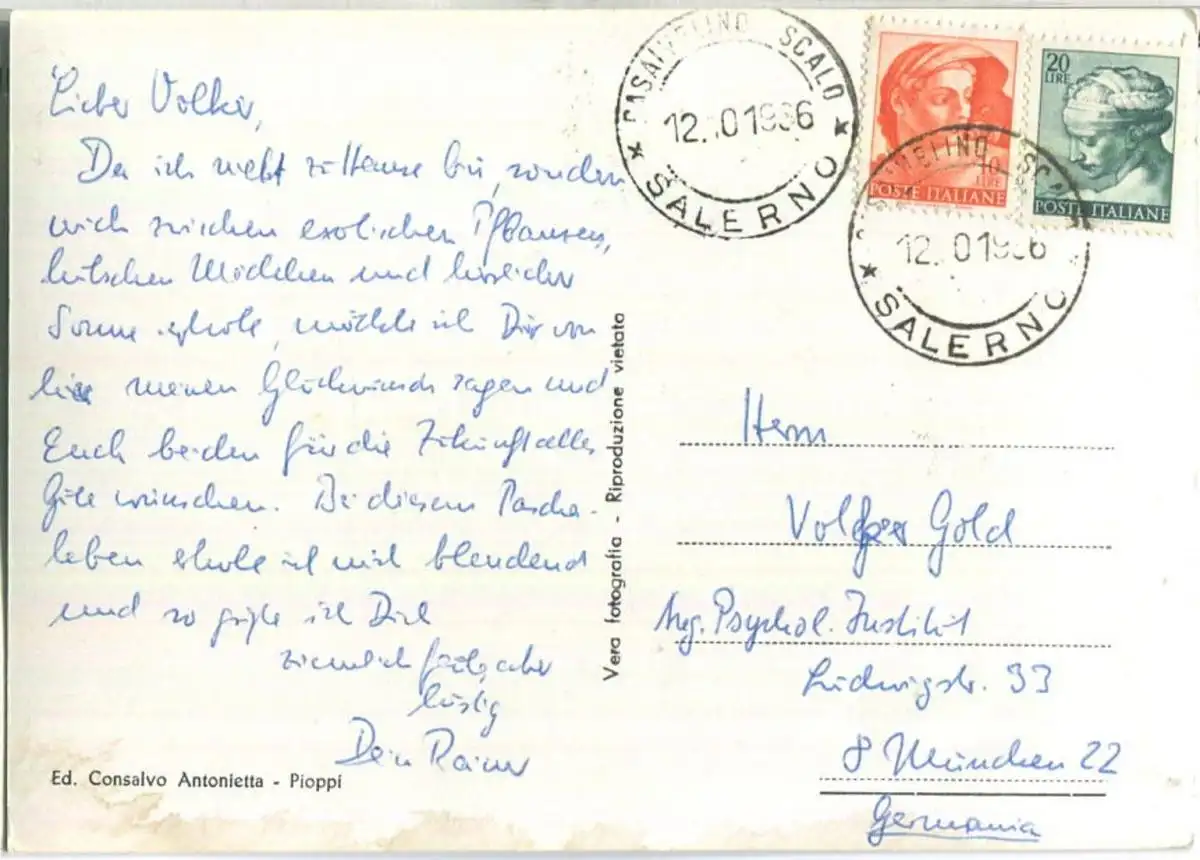 Lieber Volker,
Da ich nicht zu Hause bin, sondern
mich zwischen exotischen Pflanzen,
hübschen Mädchen und herrlicher
Sonne erhole, möchte ich Dir von
hier meinen Glückwunsch sagen und
Euch beiden für die Zukunft alles
Gute wünschen. Bei diesem Pascha-
leben erhole ich mich blendend
und so grüße ich Dich
ziemlich
lustig
Dein Rainer
Ed. Consalvo Antonietta - Pioppi
Vera fotografia - Riproduzione vietata
CASALVELINO SCALO
SALERNO
POSTE ITALIANE
20
LIRE
POSTE ITALIANE
SALERNO
Herrn
Gold
Psychol. Institut
Ludwigstr. 33
8 München 22
Germania